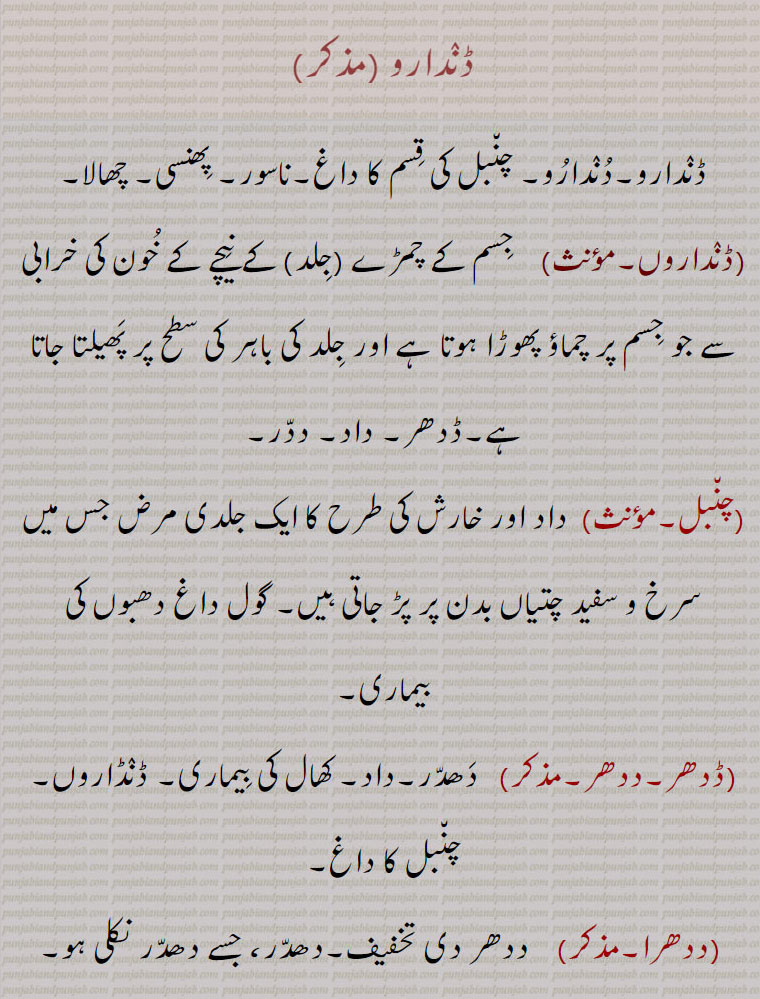 ڈنْدارو (مذکر)
ڈنْدارو۔دُنْدارُو۔ چنّبل کی قِسم کا داغ۔ناسور۔ پِھنسی۔ چھالا۔
(ڈنْداروں۔مؤنث) جِسم کے چمڑے (جِلد) کے نیچے کے خُون کی خرابی
سے جو جِسم پر چماؤ پھوڑا ہوتا ہے اور جِلد کی باہر کی سطح پر پَھیلتا جاتا
ہے۔ڈدھر۔ داد۔ ددّر۔
(چنّبل۔مؤنث) داد اور خارش کی طرح کا ایک جلدی مرض جس میں
سرخ و سفید چتیاں بدن پر پڑ جاتی ہیں۔ گول داغ دھبوں کی
بیماری۔
(ڈدھر۔ددھر۔مذکر) دَھدّر۔داد۔ کھال کی بِیماری۔ ڈنْڈاروں۔
چنّبل کا داغ۔
(ددھرا۔مذکر) ددھر دی تخفیف۔دھدّر، جسے دھدّر نکلی ہو۔